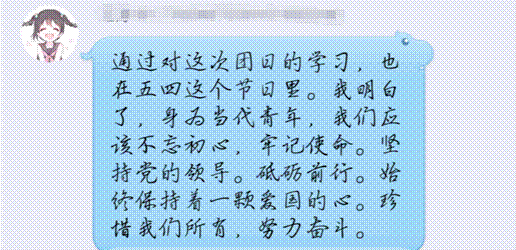 通过对这次团日的学习，也
在五四这个节日里。我明白
了，身为当代青年，我们应
该不忘初心，牢记使命。坚
持党的领导。砥砺前行。始
终保持着一颗爱国的心。珍
惜我们所有，努力奋斗。